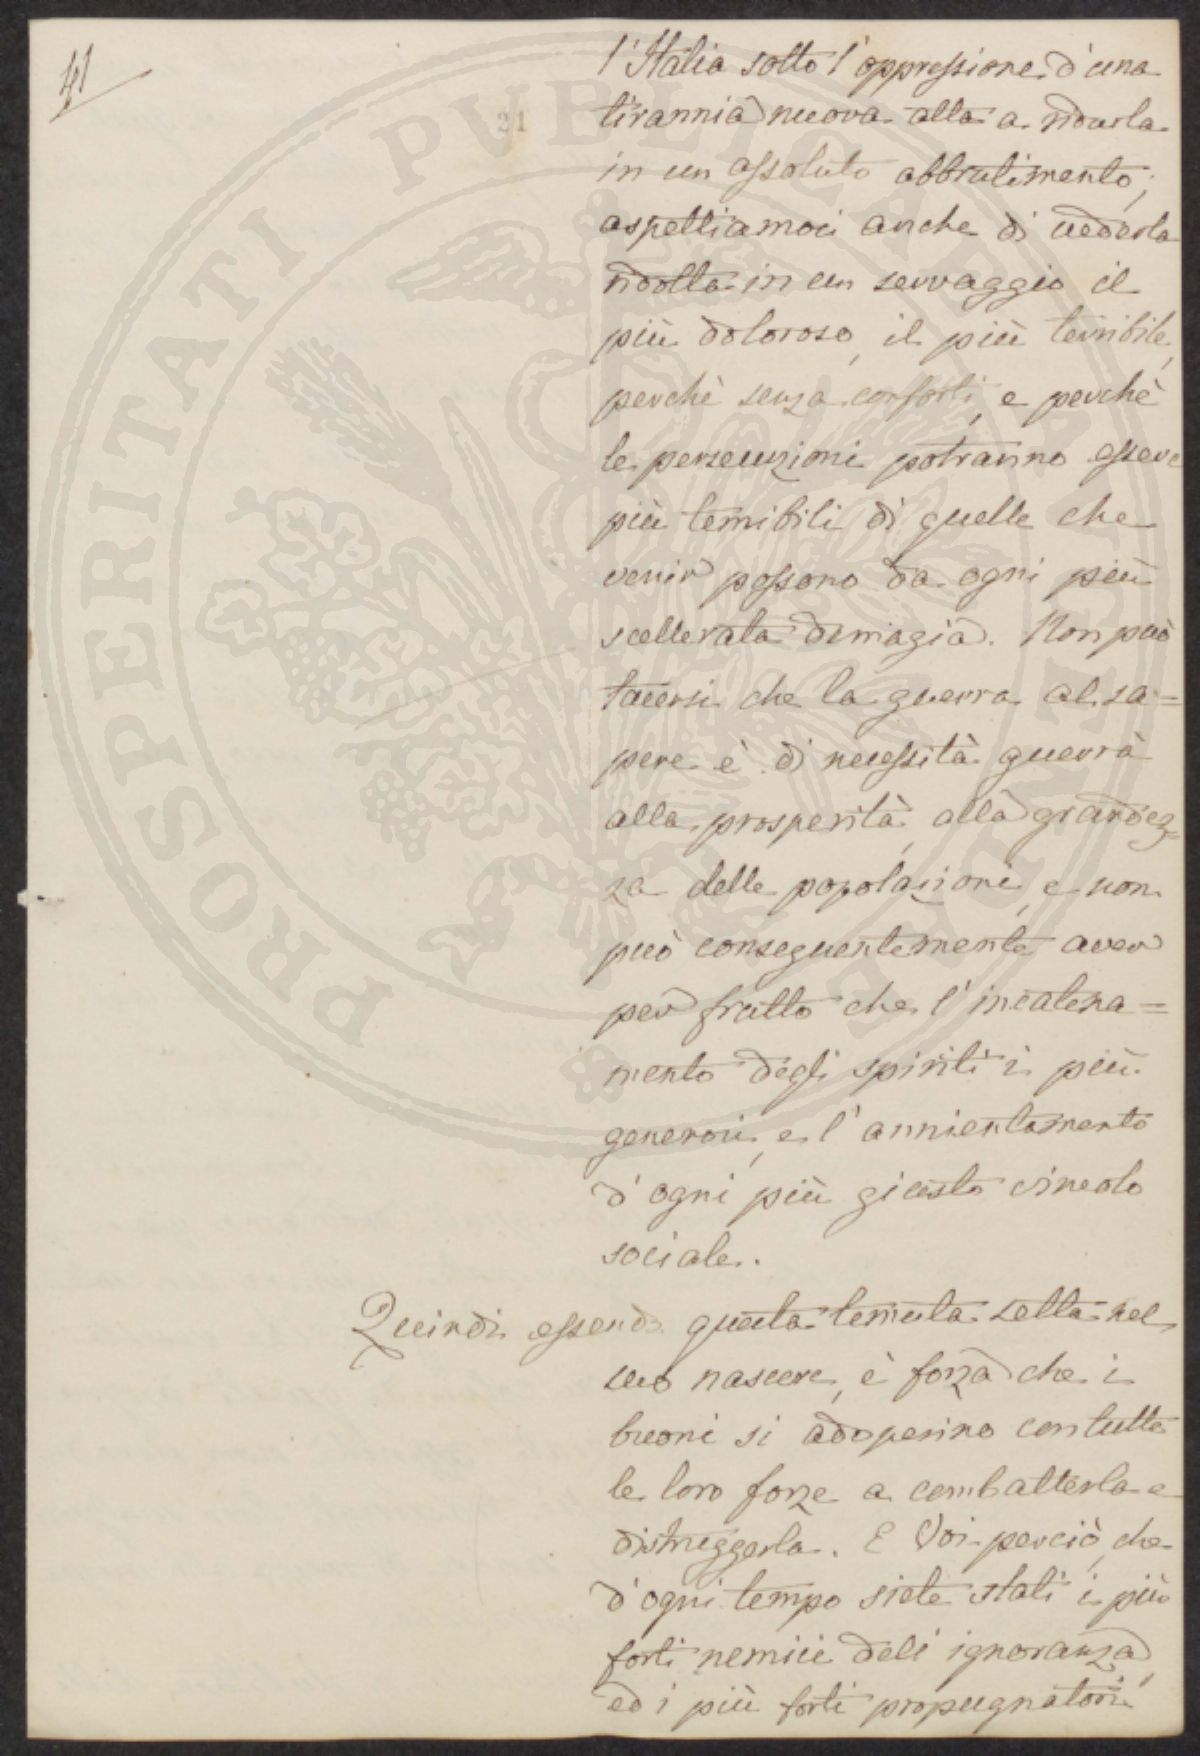 41
21
l'Italia sotto l'oppressione d'una
tirannia nuova atta a ridurla
in un assoluto abbrutimento;
aspettiamoci anche di vederla
ridotta in un servaggio il
più doloroso, il più terribile,
perchè senza conforti, e perchè
le persecuzioni potranno essere
più temibili di quelle che
venir possono da ogni più
scellerata demagia. Non può
tacersi che la guerra al sa=
pere è di necessità guerra
alla prosperità, alla grandez=
za delle popolazioni, e non
può conseguentemente aver
per frutto che l'incatena=
mento degli spiriti i più
generosi, e l'annientamento
d'ogni più giusto vincolo
sociale.
Quindi essendo questa temuta setta nel
suo nascere, è forza che i
buoni si adoperino con tutte
le loro forze a combatterla e
distruggerla. E Voi perciò, che
d'ogni tempo siete stati i più
forti nemici dell'ignoranza,
ed i più forti propugnatori
PROSPERITATI PVBLICAE AVGENDAE